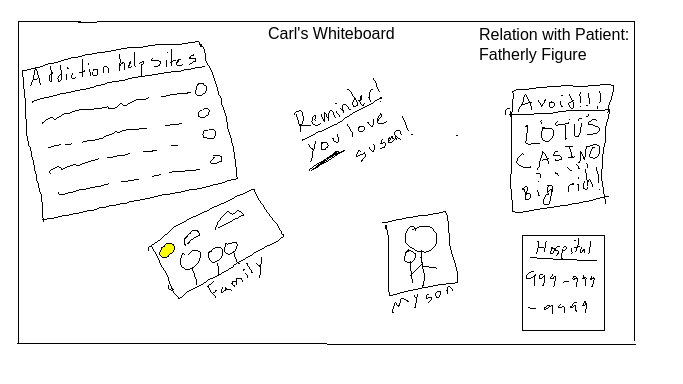 Carl's Whiteboard
Relation with Patient:
Fatherly Figure
Addiction help sites
Reminder!
you love
susen!
Avoid!!!
LOTUS
CASINO
Big rich!!
Family
My son
Hospital
999-999
-9999